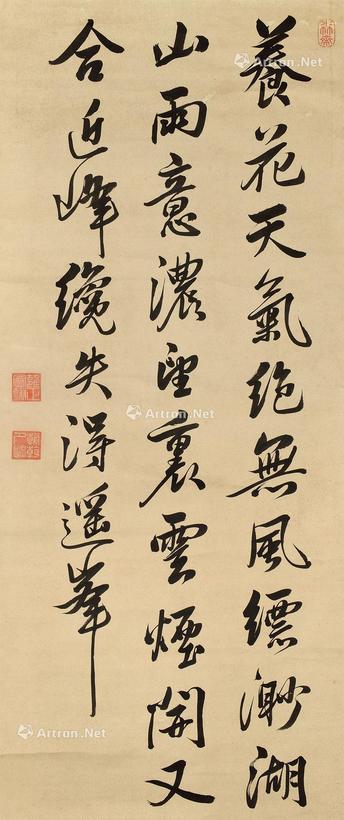 養花天氣絶無風縹渺湖
山雨意濃望裏雲煙開又
合近峰纔失得遥峯
Artron.Net
Artron.Net
Artron.Net
Artron.Net